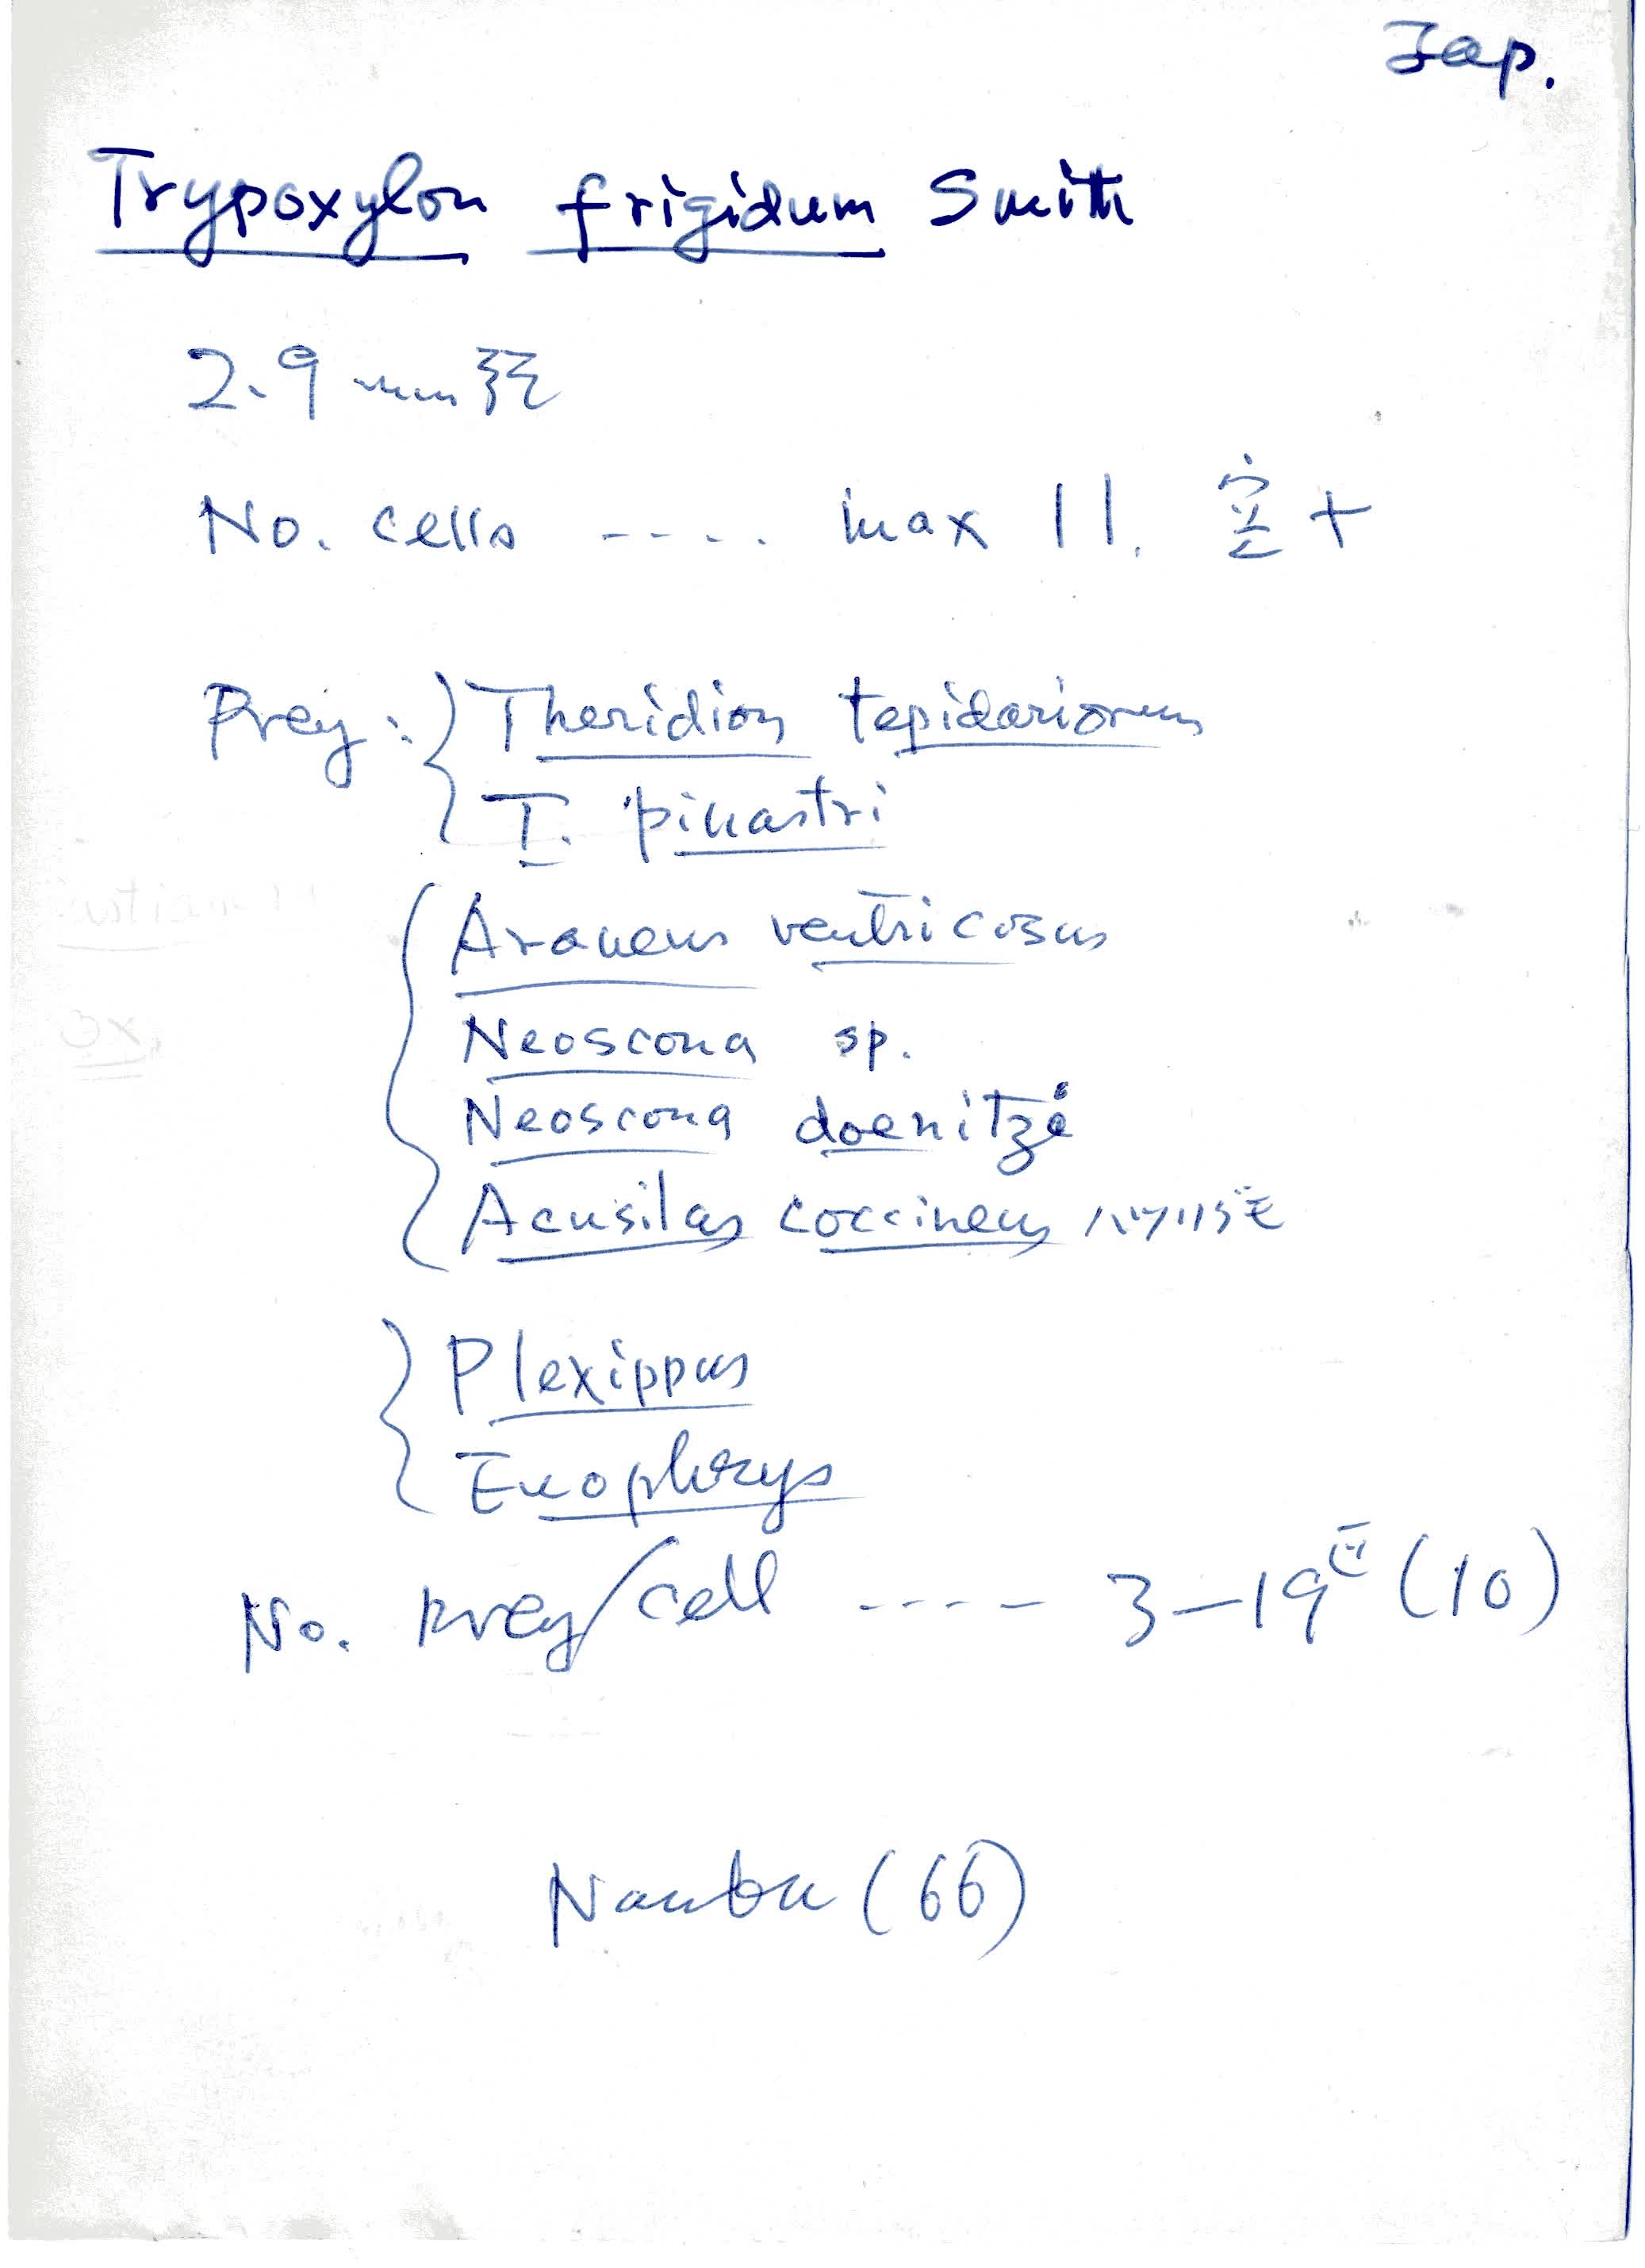 Jap.
Trypoxylon frigidum Smith
2.9 mm
No. cells ---- max 11. 空+
Prey: Theridion tepidariorum
T. pinastri
Araneus ventricosus
Neoscona sp.
Neoscona doenitzi
Acusilas coccineus
Plexippus
Euophrys
No. prey/cell ---- 3-19 (10)
Nambu (66)